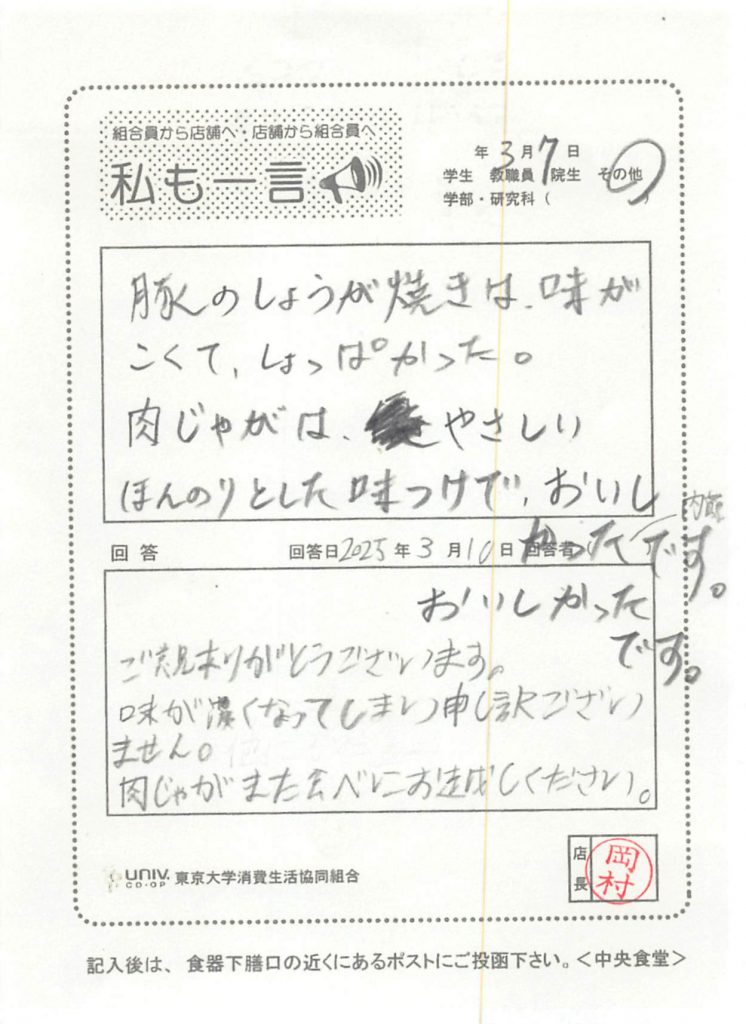 組合員から店舗へ・店舗から組合員へ
私も一言
年3月7日
学生 教職員 院生 その他
学部・研究科( )
豚のしょうが焼きは、味が
こくて、しょっぱかった。
肉じゃがは、やさしい
ほんのりとした味つけで、おいし
かったです。
回答 回答日2025年3月10日 回答者
おいしかった
です。
ご意見ありがとうございます。
味が濃くなってしまい申し訳ござい
ません。
肉じゃがまた食べにお越しください。
UNIV.
CO-OP 東京大学消費生活協同組合
店長 岡村
記入後は、食器下膳口の近くにあるポストにご投函下さい。<中央食堂>